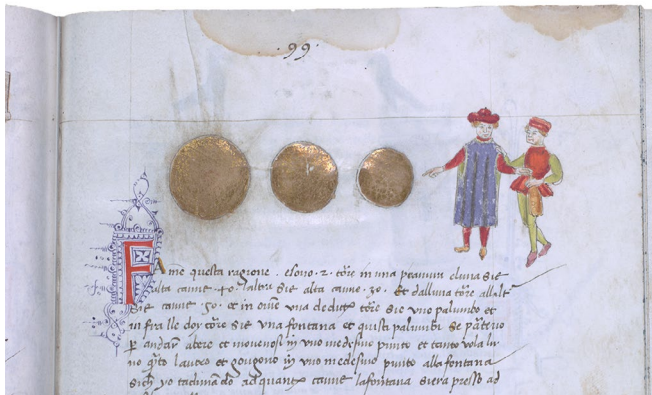 99
Fame questa ragione . esono . 2 . torre in una pranura eluna sie
alta canne . 40 . laltra sie alta canne . 30 . Et dalluna torre allalt
sie canne . 50 . et in cime una
torre sie uno palumbo et
in fra lle doy torre sie una fontana et quisti palumbi se partero
per andare abere et moveno si in uno medesmo punto et tanto vola lu
no quanto lautro et gongono in uno medesmo punto alla fontana
yo tadimando ad quante canne la fontana siera presso ad